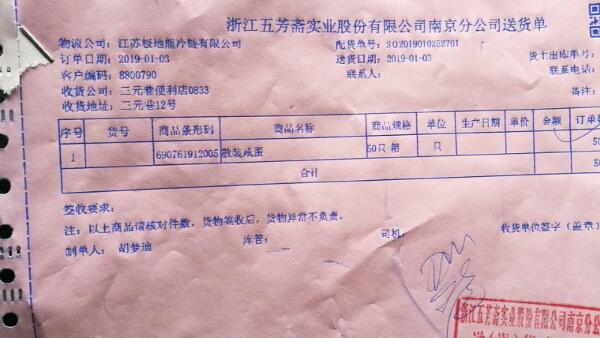 浙江五芳斋实业股份有限公司南京分公司送货单
物流公司: 江苏极地熊冷链有限公司 配货单号: SO2019010252701 货主出库单号:
订单日期: 2019-01-03 送货日期: 2019-01-03 联系电话:
客户编码: 8800790 联系人:
收货公司: 二元巷便利店0833 备注:
收货地址: 二元巷12号
序号 货号 商品条形码 商品名称 商品规格 单位 生产日期 单价 金额 订单
1 690761912005 散装咸蛋 50只 箱 只 50
合计 50
签收要求:
注: 以上商品请核对件数, 货物签收后, 货物异常不负责。
制单人: 胡梦迪 库管: 司机: 收货单位签字(盖章)
浙江五芳斋实业股份有限公司南京分公